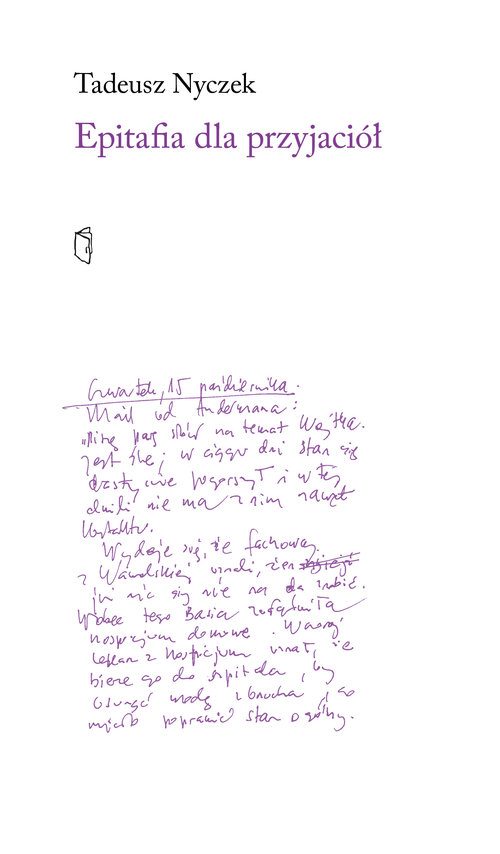 Tadeusz Nyczek
Epitafia dla przyjaciół
Czwartek, 15 października.
Mail od Andermana:
"Piszę parę słów na temat Wojtka.
Jest źle; w ciągu dni stan się
drastycznie pogorszył i w tej
chwili nie ma z nim nawet
kontaktu.
Wydaje się, że fachowcy
z Wawelskiej uznali, że
już nic się nie da zrobić.
Wobec tego Basia załatwiła
hospicjum domowe. Wczoraj
lekarz z hospicjum uznał, że
bierze go do szpitala, by
usunąć wodę z brzucha, co
poprawić stan ogólny.